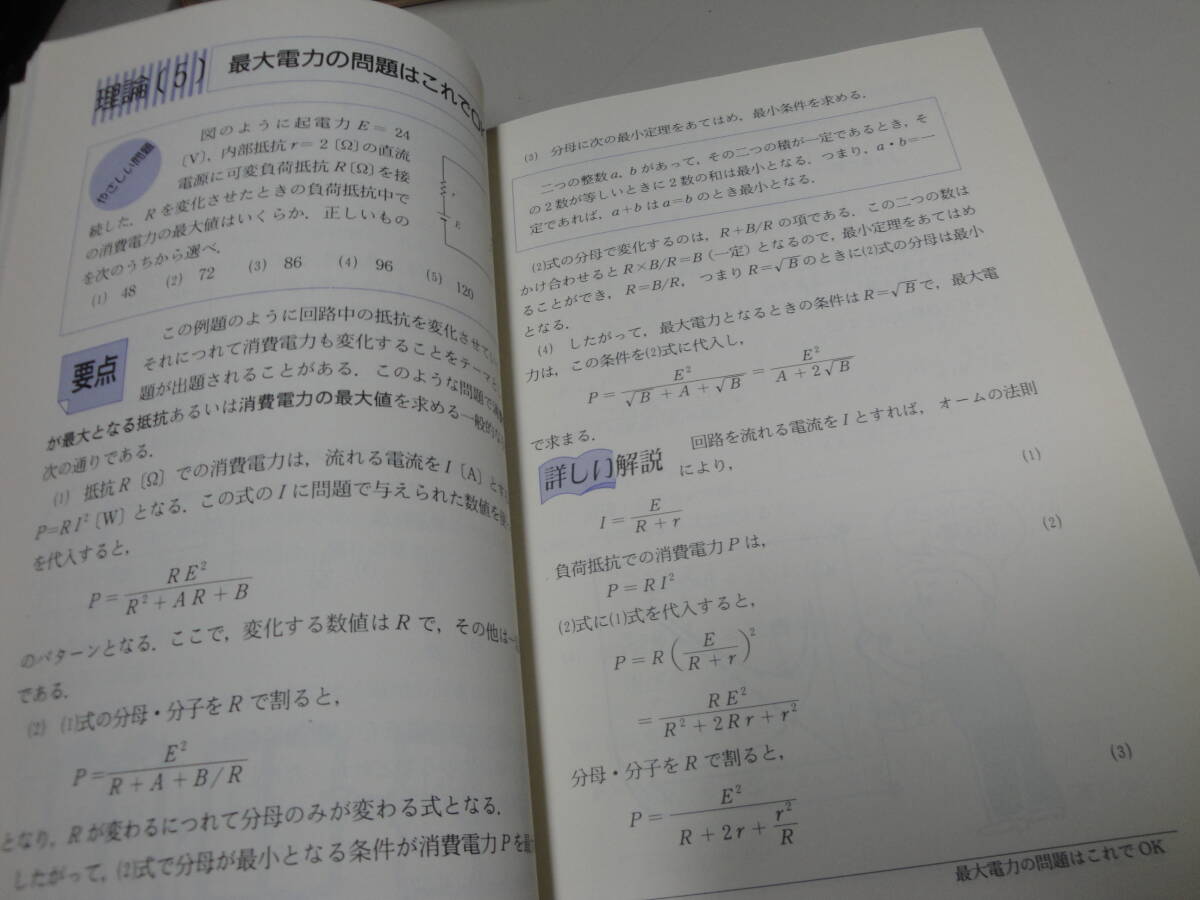 理論〔5〕 最大電力の問題はこれでOK
やさしい問題
図のように起電力 E = 24
〔V〕, 内部抵抗 r = 2〔Ω〕の直流
電源に可変負荷抵抗 R〔Ω〕を接
続した. R を変化させたときの負荷抵抗中で
の消費電力の最大値はいくらか. 正しいもの
を次のうちから選べ.
(1) 48 (2) 72 (3) 86 (4) 96 (5) 120
r
E
要点
この例題のように回路中の抵抗を変化させて
それにつれて消費電力も変化することをテーマと
題が出題されることがある. このような問題で
が最大となる抵抗あるいは消費電力の最大値を求める一般的な
次の通りである.
(1) 抵抗 R〔Ω〕での消費電力は, 流れる電流を I〔A〕と
P=RI²〔W〕となる. この式の I に問題で与えられた数値を
を代入すると,
P=RE²/(R²+AR+B)
のパターンとなる. ここで, 変化する数値は R で, その他は
である.
(2) (1)式の分母・分子を R で割ると,
P=E²/(R+A+B/R)
となり, R が変わるにつれて分母のみが変わる式となる.
したがって, (2)式で分母が最小となる条件が消費電力 P を
(3) 分母に次の最小定理をあてはめ, 最小条件を求める.
二つの整数 a, b があって, その二つの積が一定であるとき, そ
の 2 数が等しいときに 2 数の和は最小となる. つまり, a・b=一
定であれば, a+b は a=b のとき最小となる.
(2)式の分母で変化するのは, R+B/R の項である. この二つの数は
かけ合わせると R×B/R=B (一定) となるので, 最小定理をあてはめ
ることができ, R=B/R, つまり R=√B のときに(2)式の分母は最小
となる.
(4) したがって, 最大電力となるときの条件は R=√B で, 最大電
力は, この条件を(2)式に代入し,
P=E²/(√B+A+√B)=E²/(A+2√B)
で求まる.
詳しい解説 回路を流れる電流を I とすれば, オームの法則
により,
I=E/(R+r) (1)
負荷抵抗での消費電力 P は,
P=RI² (2)
(2)式に(1)式を代入すると,
P=R(E/(R+r))²
=RE²/(R²+2Rr+r²)
分母・分子を R で割ると,
P=E²/(R+2r+r²/R) (3)
最大電力の問題はこれで OK